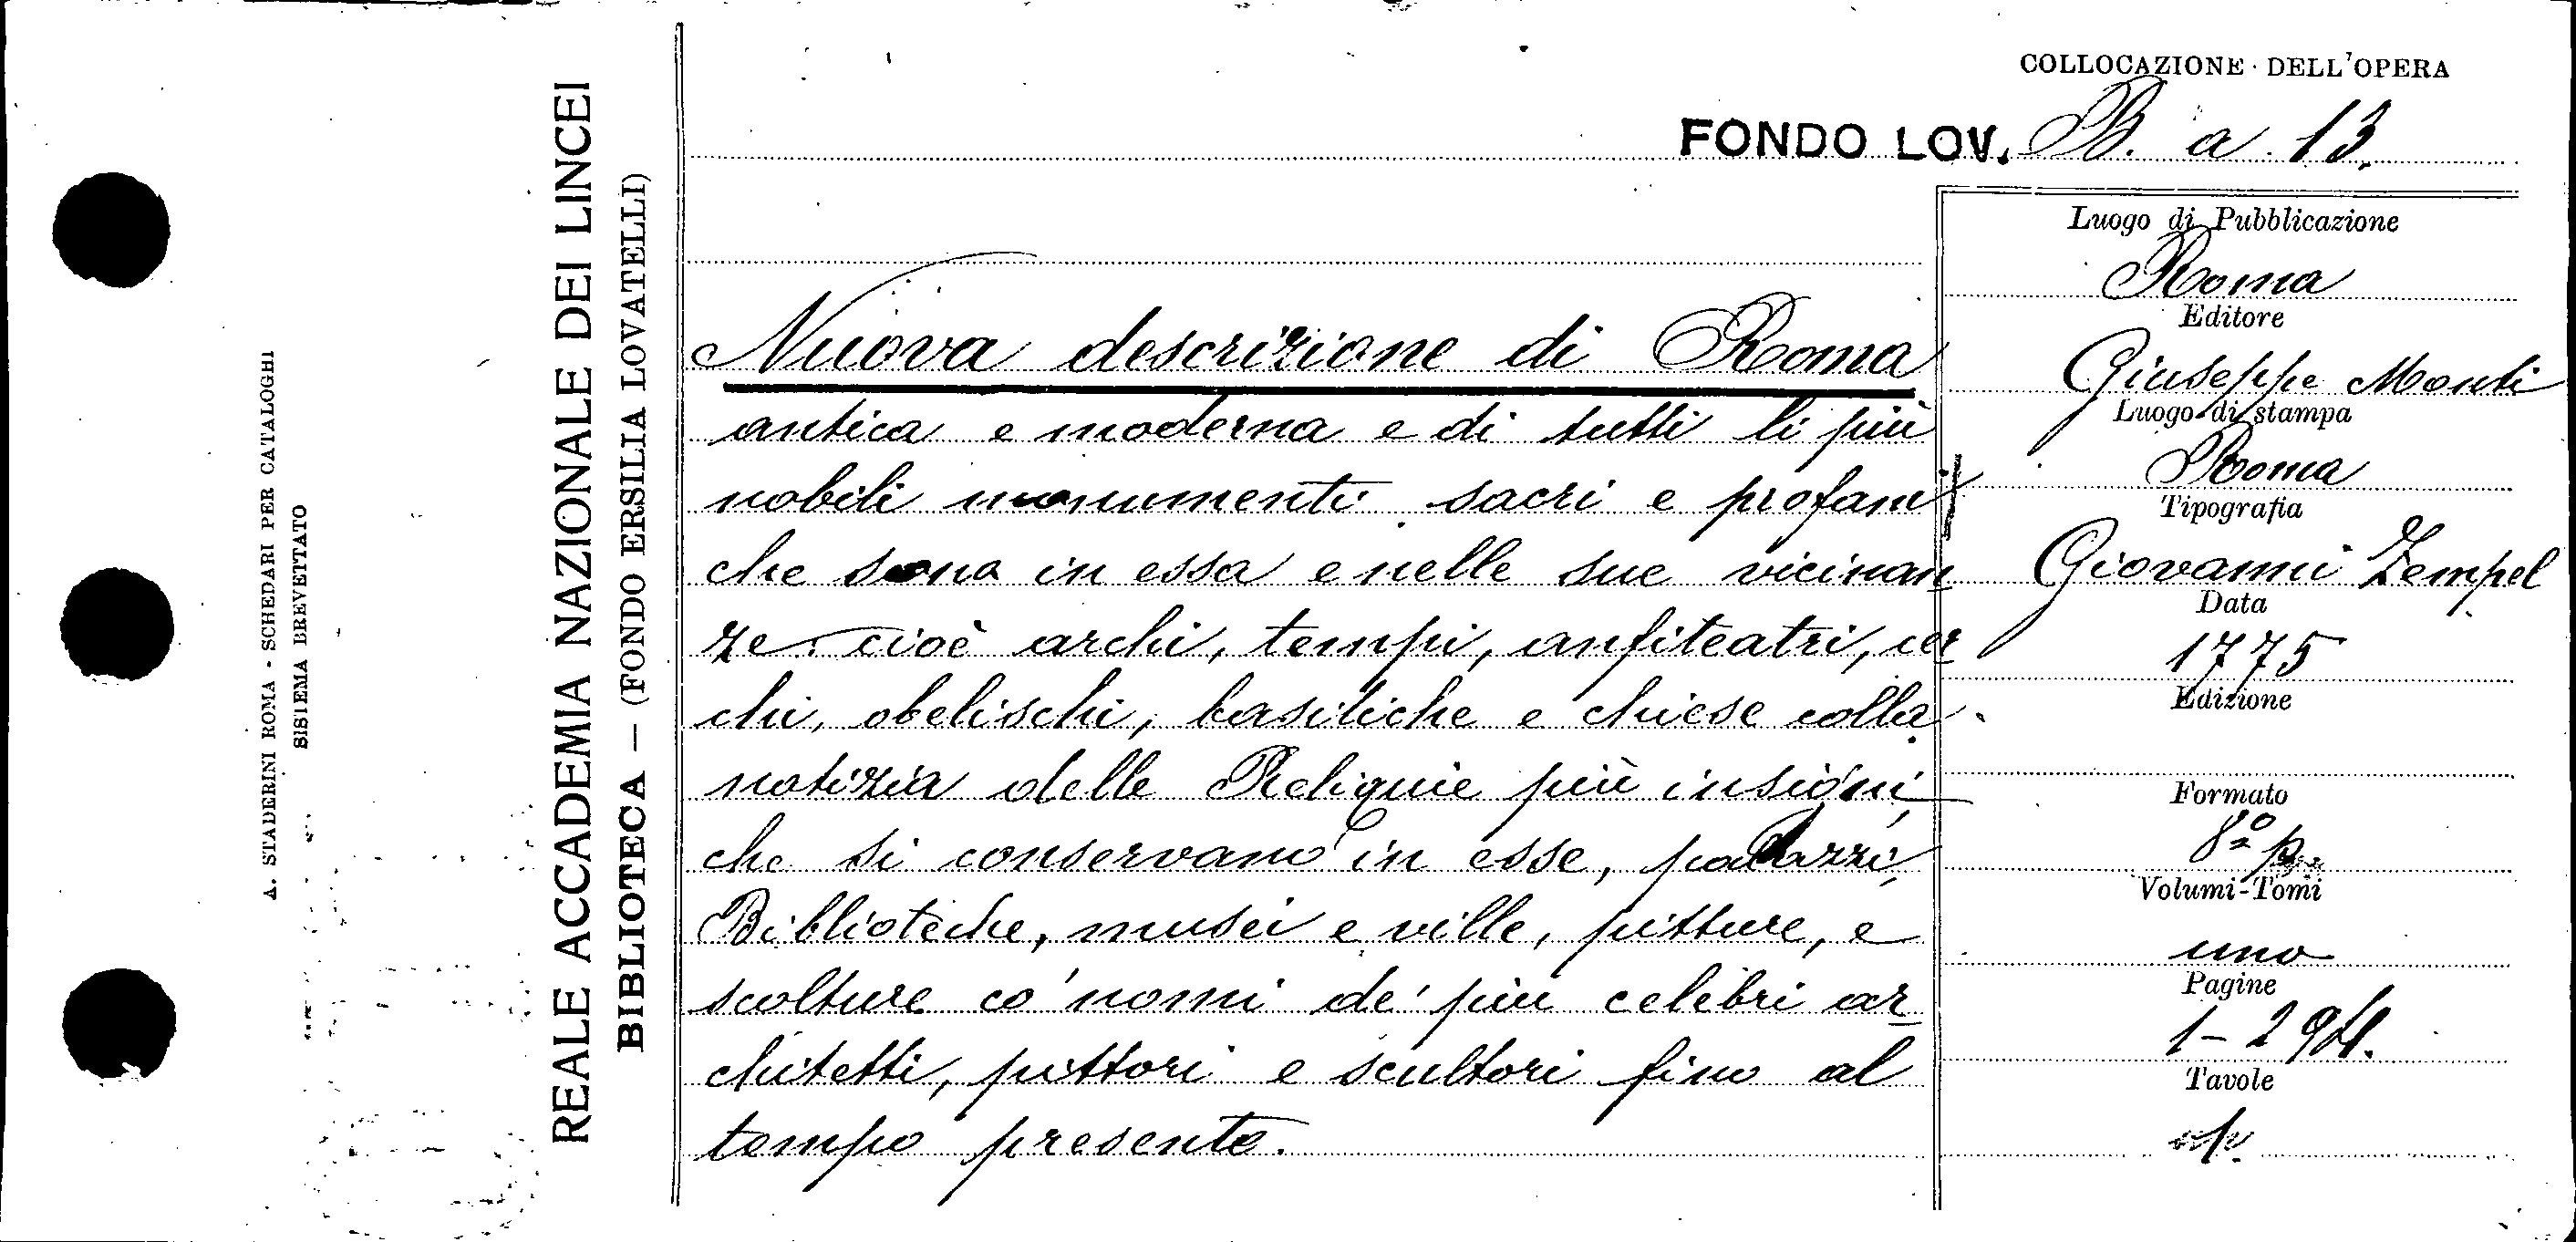 COLLOCAZIONE DELL'OPERA
FONDO LOV. B. a. 13.
A. STADERINI ROMA - SCHEDARI PER CATALOGHI
SISTEMA BREVETTATO
REALE ACCADEMIA NAZIONALE DEI LINCEI
BIBLIOTECA — (FONDO ERSILIA LOVATELLI)
Nuova descrizione di Roma
antica e moderna e di tutti li più
nobili monumenti sacri e profani
che sono in essa e nelle sue vicinan
ze cioè archi, tempi, anfiteatri, cer
chi, obelischi, basiliche e chiese colla
notizia delle Reliquie più insigni,
che si conservano in esse, palazzi,
Biblioteche, musei e ville, pitture, e
scolture co' nomi de' più celebri ar
chitetti, pittori e scultori fino al
tempo presente.
Luogo di Pubblicazione
Roma
Editore
Giuseppe Monti
Luogo di stampa
Roma
Tipografia
Giovanni Zempel
Data
1775
Edizione
Formato
8º p.
Volumi-Tomi
uno
Pagine
1-294.
Tavole